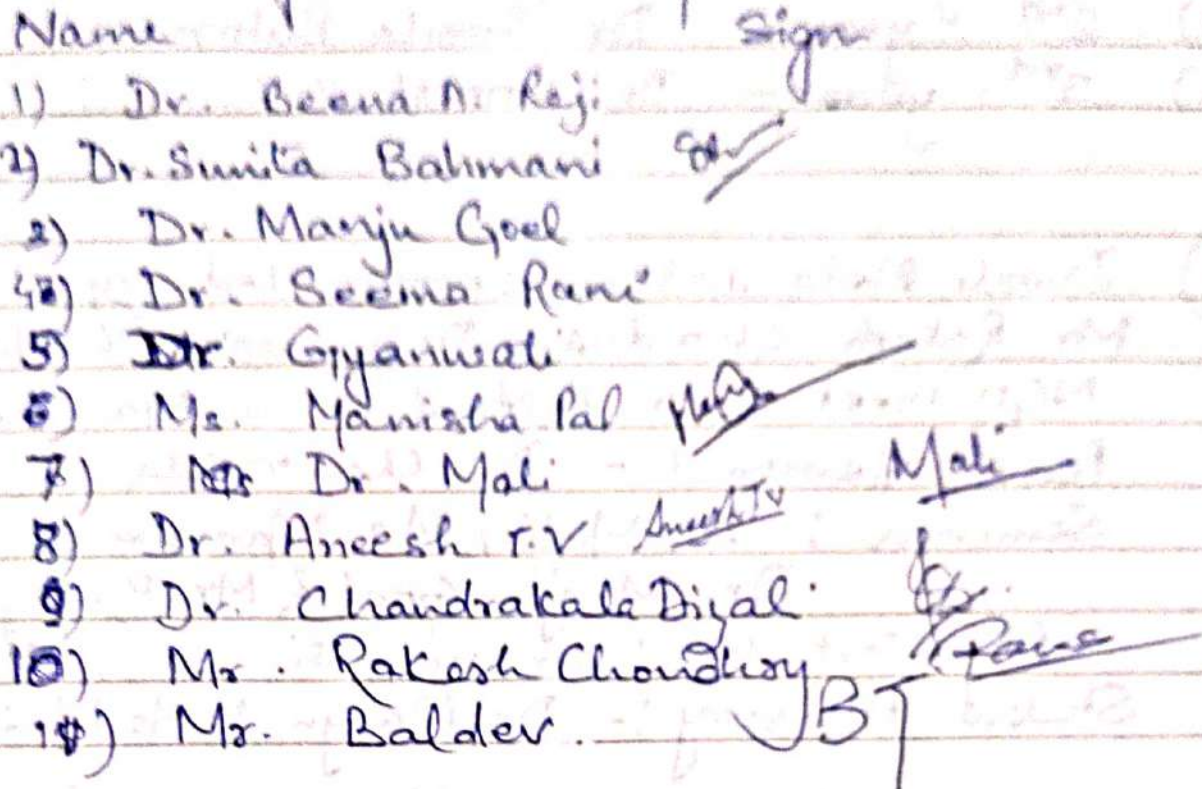 Name Sign
1) Dr. Beena A. Reji
2) Dr. Sunita Bahmani
3) Dr. Manju Goel
4) Dr. Seema Rani
5) Dr. Gyanwati
6) Ms. Manisha Pal
7) Dr. Mali Mali
8) Dr. Aneesh T.V Aneesh TV
9) Dr. Chandrakala Diyal
10) Mr. Rakesh Choudhry
11) Mr. Baldev. BT